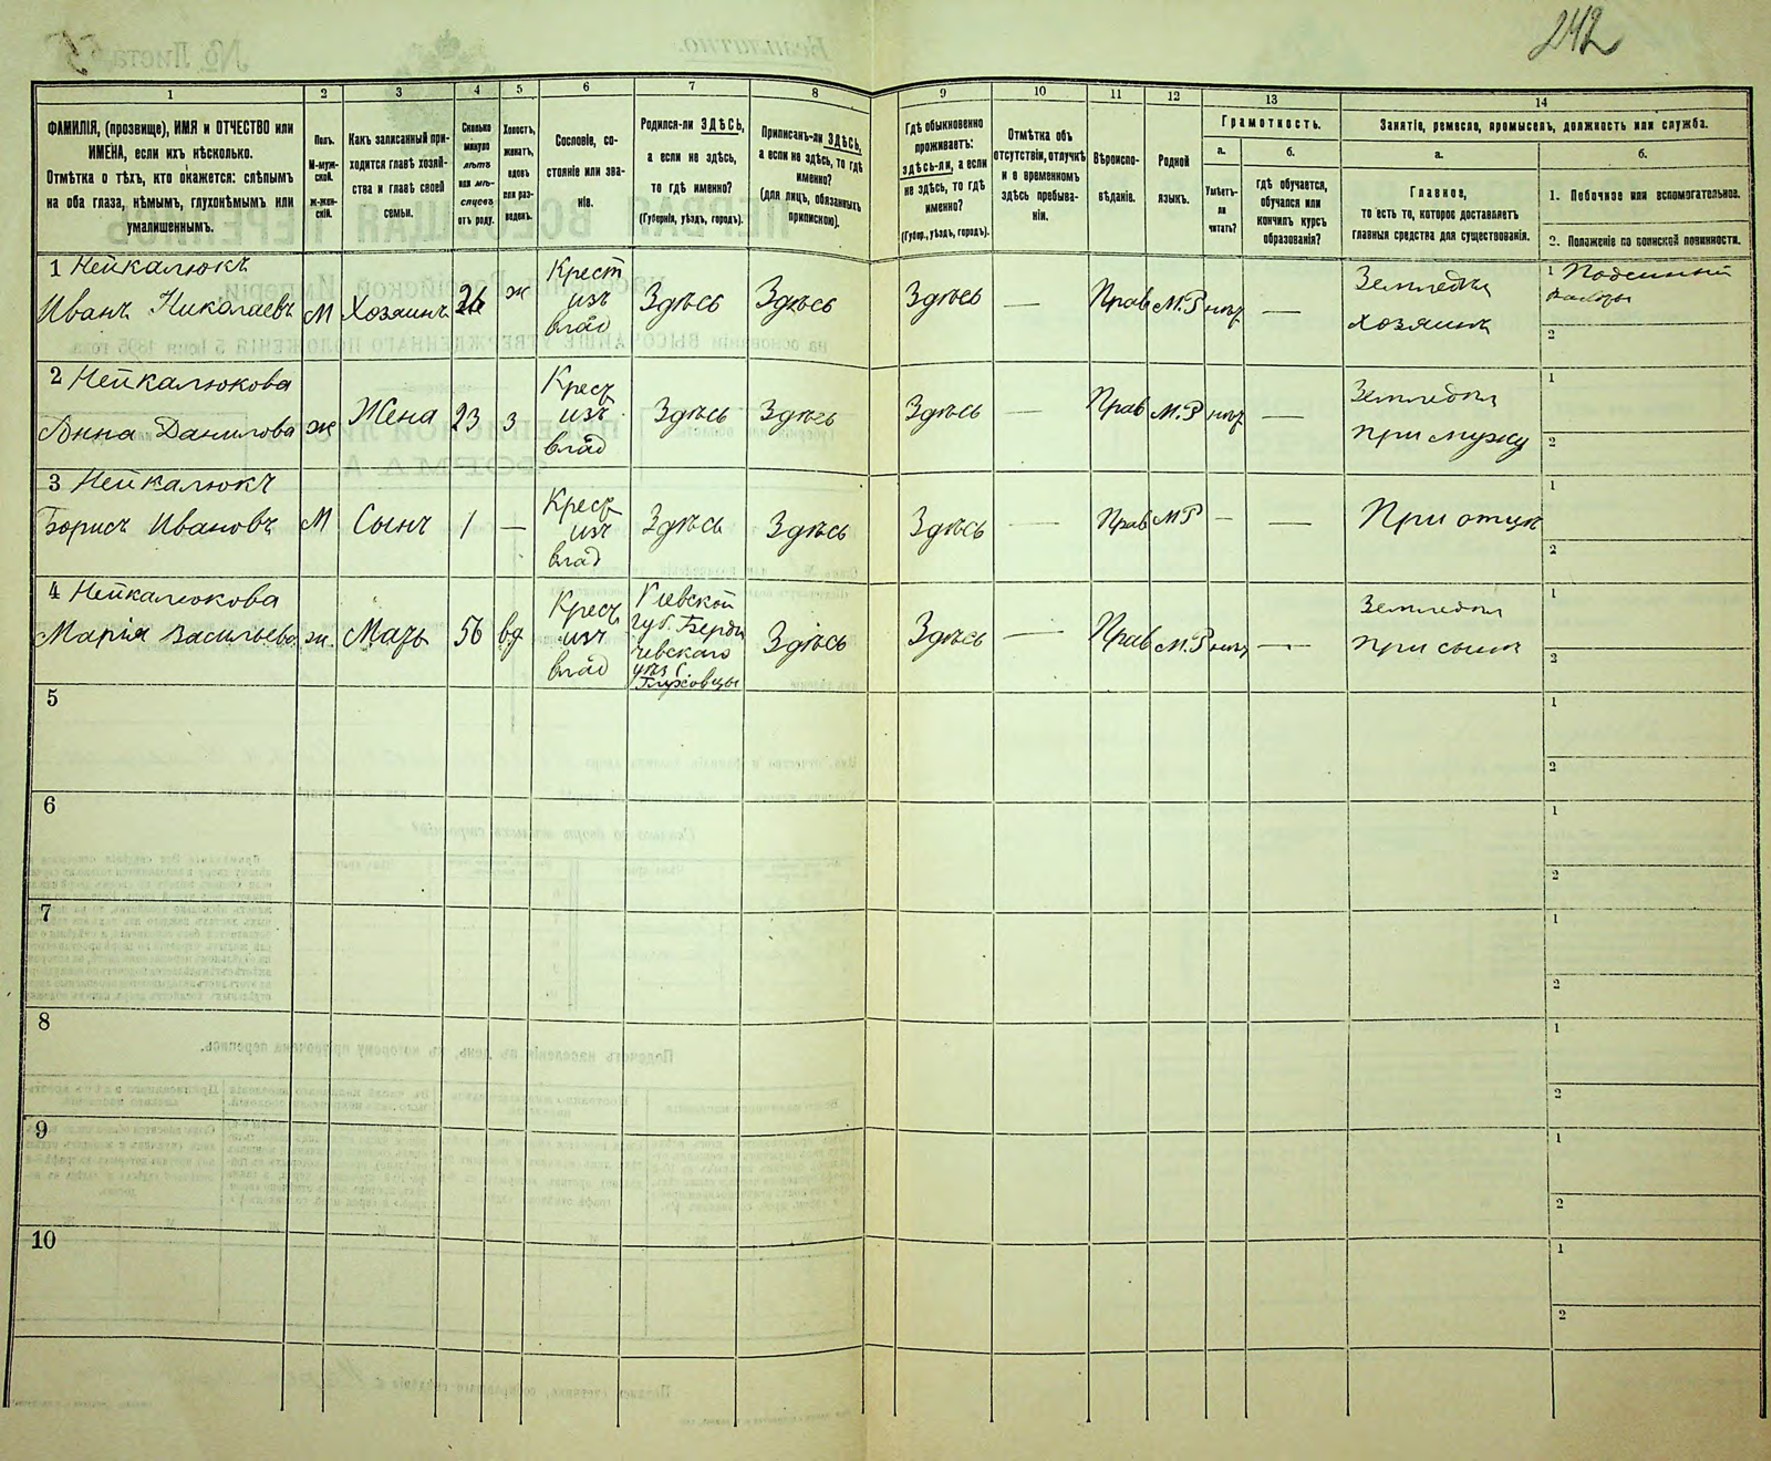 242
1 2 3 4 5 6 7 8 9 10 11 12 13 14
ФАМИЛІЯ, (прозвище), ИМЯ и ОТЧЕСТВО или
ИМЕНА, если ихъ нѣсколько.
Отмѣтка о тѣхъ, кто окажется: слѣпымъ
на оба глаза, нѣмымъ, глухонѣмымъ или
умалишеннымъ.
Полъ.
М-муж-
ской.
Ж-жен-
скій.
Какъ записанный при-
ходится главѣ хозяй-
ства и главѣ своей
семьи.
Сколько
минуло
лѣтъ
или мѣ-
сяцевъ
отъ роду.
Холостъ,
женатъ,
вдовъ
или раз-
веденъ.
Сословіе, со-
стояніе или зва-
ніе.
Родился-ли ЗДѢСЬ,
а если не здѣсь,
то гдѣ именно?
(Губернія, уѣздъ, городъ).
Приписанъ-ли ЗДѢСЬ,
а если не здѣсь, то гдѣ
именно?
(для лицъ, обязанныхъ
припискою).
Гдѣ обыкновенно
проживаетъ:
здѣсь-ли, а если
не здѣсь, то гдѣ
именно?
(Губер., уѣздъ, городъ).
Отмѣтка объ
отсутствіи, отлучкѣ
и о временномъ
здѣсь пребыва-
ніи.
Вѣроиспо-
вѣданіе.
Родной
языкъ.
Грамотность.
а.
Умѣетъ-
ли
читать?
б.
Гдѣ обучается,
обучался или
кончилъ курсъ
образованія?
Занятіе, ремесло, промыселъ, должность или служба.
а.
Главное,
то есть то, которое доставляетъ
главныя средства для существованія.
б.
1. Побочное или вспомогательное.
2. Положеніе по воинской повинности.
1 Нейкалюкъ
Иванъ Николаевъ М Хозяинъ 26 ж Крест изъ влад Здѣсь Здѣсь Здѣсь — Прав М.Р нѣт — Земледѣл хозяинъ
1
2
2 Нейкалюкова
Анна Данилова ж Жена 23 з Крест изъ влад Здѣсь Здѣсь Здѣсь — Прав М.Р нѣт — Земледѣл при мужу
1
2
3 Нейкалюкъ
Борисъ Ивановъ М Сынъ 1 — Крест изъ влад Здѣсь Здѣсь Здѣсь — Прав МР — — При отцѣ
1
2
4 Нейкалюкова
Марія Васильева ж. Мать 56 вд Крест изъ влад
Кіевской
губ. Берди
чевскаго
уѣз с.
Глуховцы
Здѣсь Здѣсь — Прав М.Р нѣт — Земледѣл при сынѣ
1
2
5
1
2
6
1
2
7
1
2
8
1
2
9
1
2
10
1
2